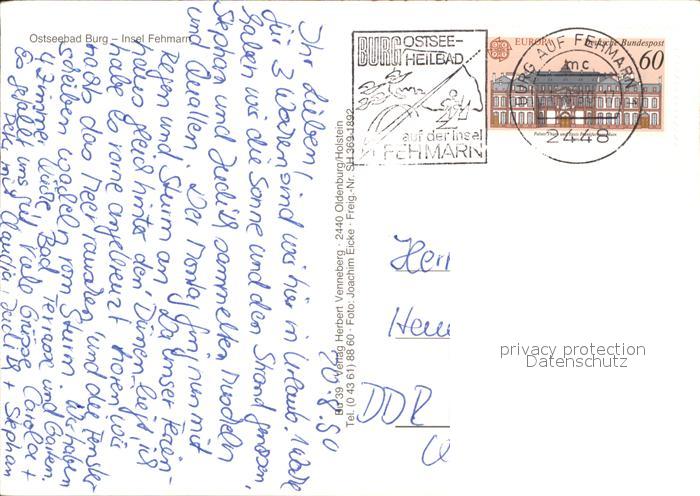 Ostseebad Burg – Insel Fehmarn
20.8.90
Ihr Lieben!
Für 3 Wochen sind wir hier in Urlaub. 1 Woche
haben wir die Sonne und den Strand genossen,
Stephan und Judith sammelten Muscheln
und Quallen. Der Montag fing nun mit
Regen und Sturm an. Da unser Ferien-
haus gleich hinter den Dünen liegt, ist
habe vorne angebeult hören wir
nachts das Meer rauschen und die Fenster-
scheiben wackeln vom Sturm. Wir haben
4 Zimmer, Küche, Bad, Terrasse und Garten.
Es gefällt uns gut. Viele Grüße
Claudia, Judith + Stephan
Carola +
Bu 39 Verlag Herbert Venneberg · 2440 Oldenburg/Holstein
Tel. (0 43 61) 88 60 · Foto: Joachim Eicke · Freig.-Nr. SH 369-1892
BURG OSTSEE-
HEILBAD
auf der Insel
FEHMARN
EUROPA Deutsche Bundespost
60
BURG AUF FEHMARN
mc
2448
Herr
DDR
privacy protection
Datenschutz